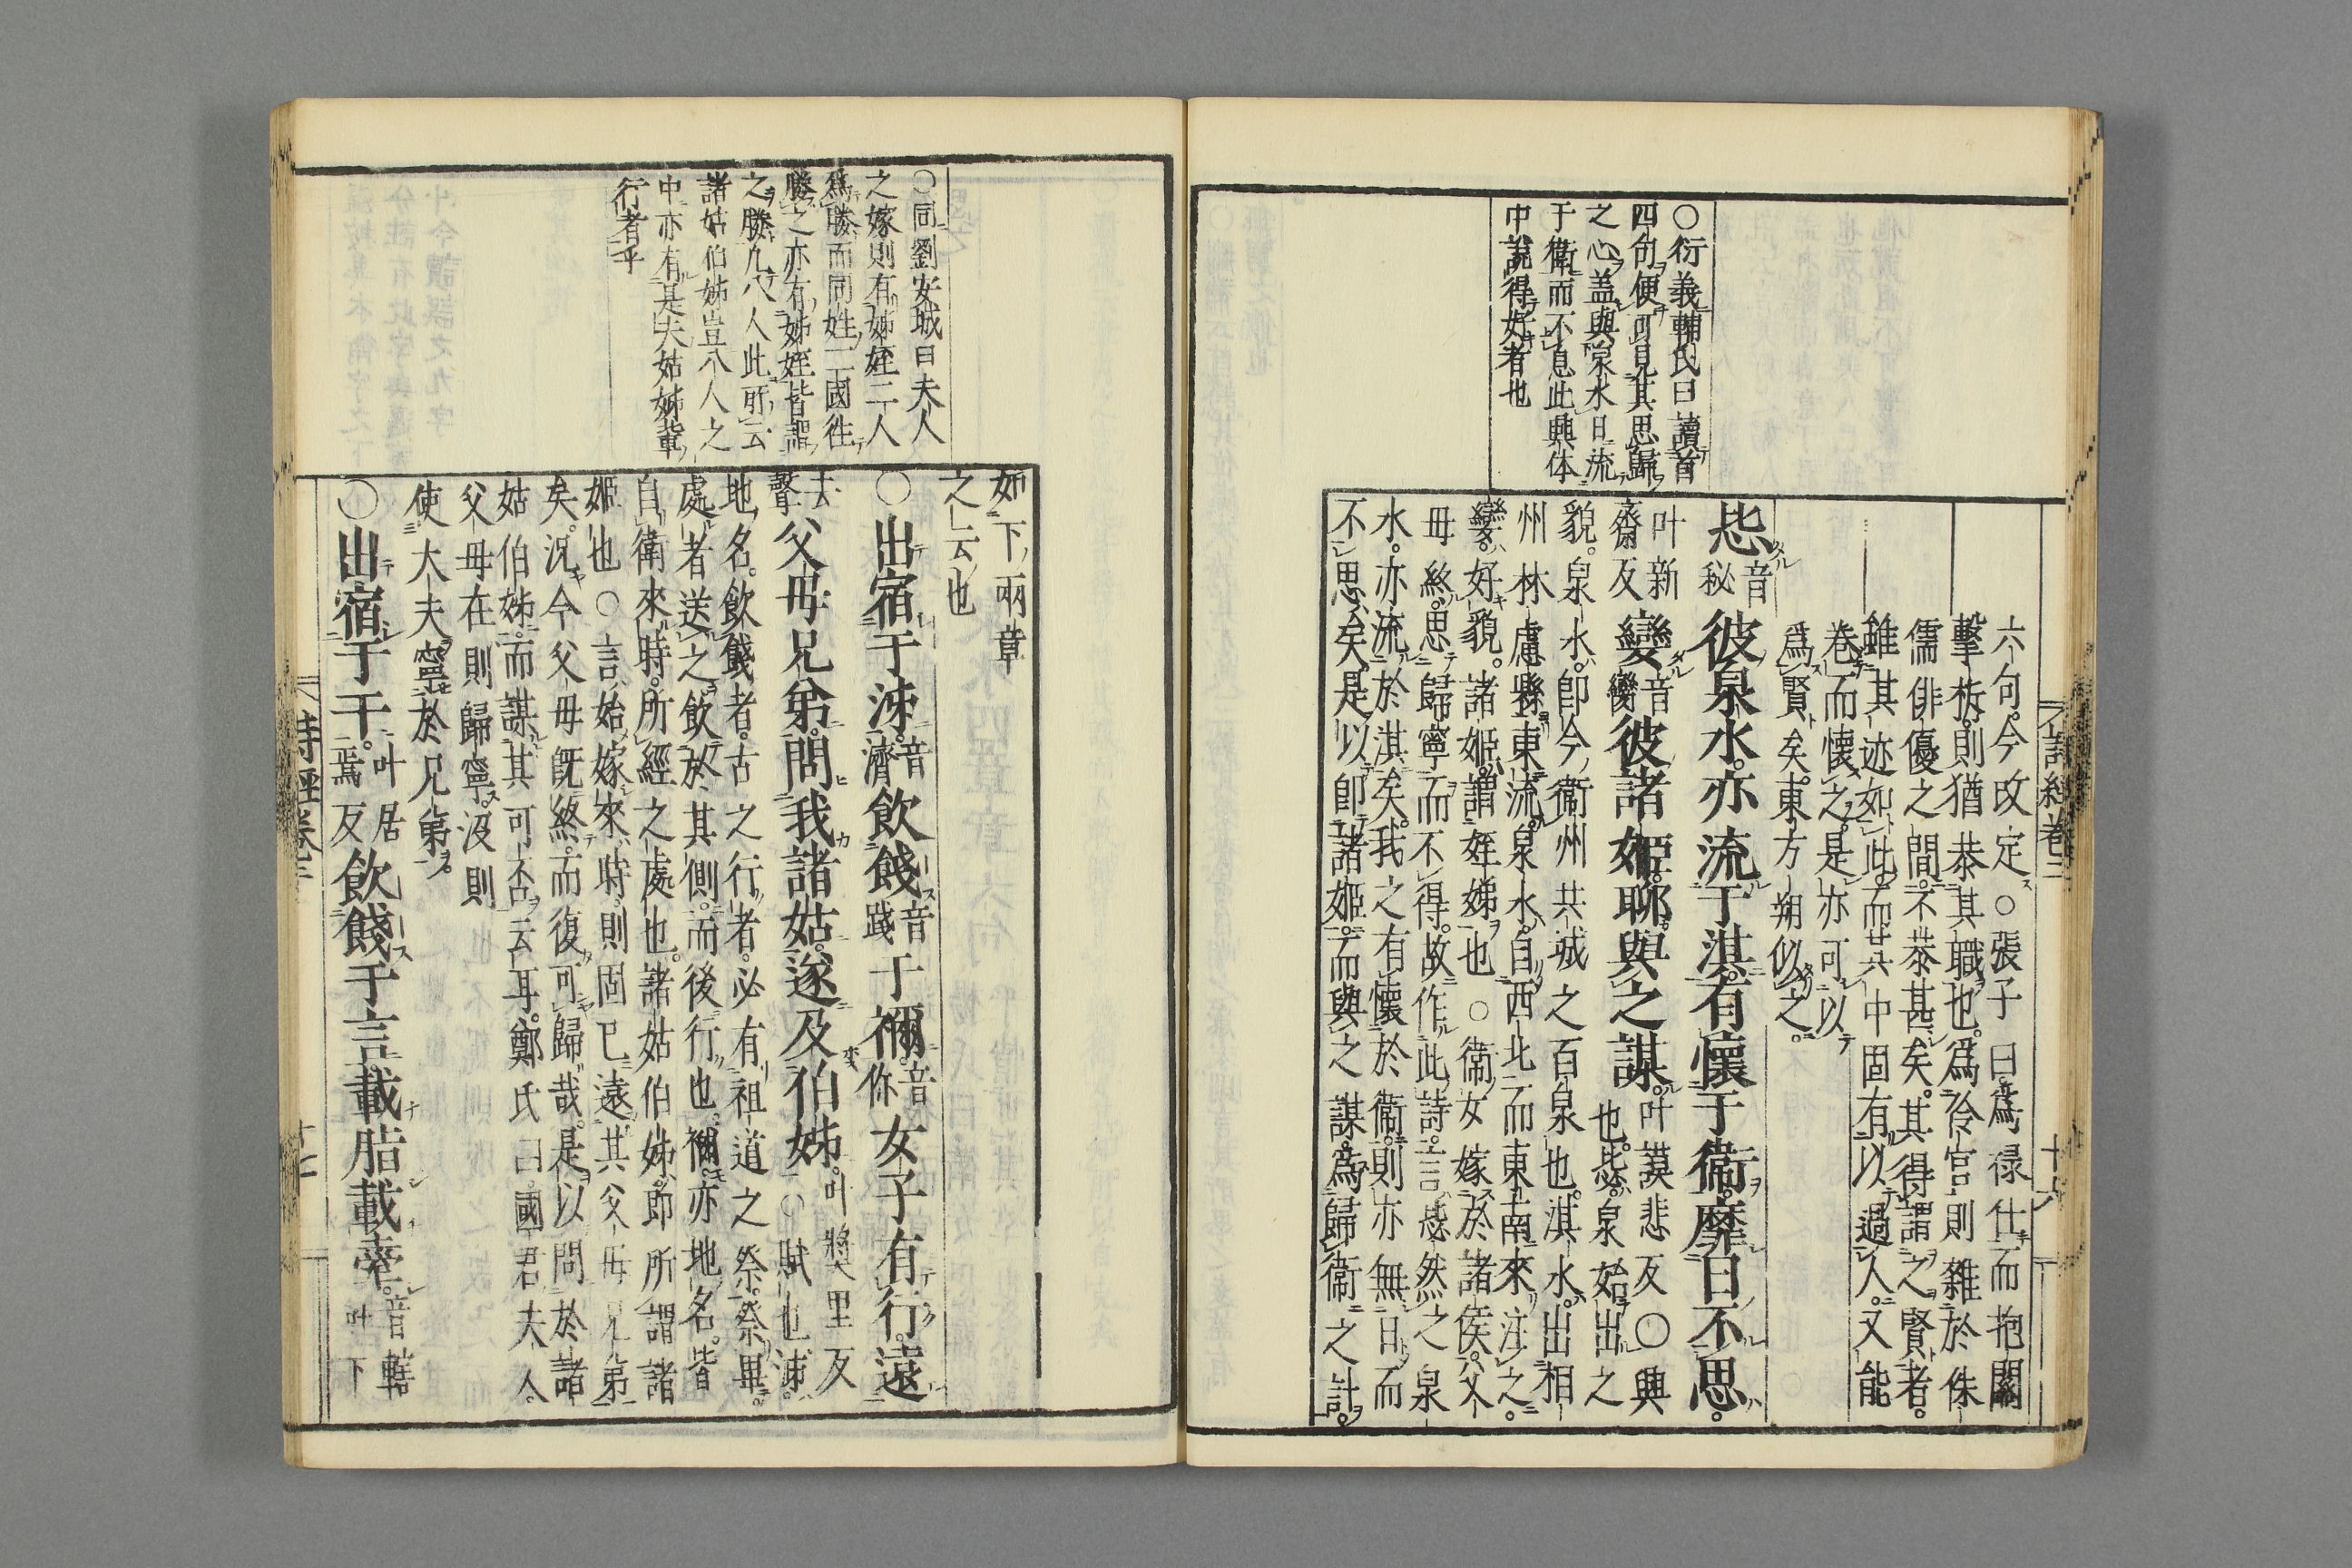 詩經卷二
六句今改定○張子曰爲祿仕而抱關
擊柝則猶恭其職也爲伶官則雜於侏
儒俳優之間不恭甚矣其得謂之賢者
雖其迹如此而其中固有以過人又能
卷而懷之是亦可以
爲賢矣東方朔似之
○衍義輔氏曰讀首
四句便可見其思歸
之心蓋與泉水日流
于衛而不息此興体
中說得好者也
毖音秘彼泉水亦流于淇有懷于衛靡日不思
叶新齎反孌音彼諸姬聊與之謀叶謨悲反○興
也毖泉始出之
貌泉水卽今衞州共城之百泉也淇水出相
州林慮縣東流泉水自西北而東南來注之
孌好貌諸姬謂姪娣也○衛女嫁於諸侯父
母終思歸寧而不得故作此詩言毖然之泉
水亦流於淇矣我之有懷於衞則亦無日而
不思矣是以卽諸姬而與之謀爲歸衞之計
如下兩章
之云也
○同劉安城曰夫人
之嫁則有姊姪二人
爲媵而同姓二國往
媵之亦有姊姪皆謂
之媵凡八人此所云
諸姑伯姊豈八人之
中亦有是夫姑姊輩
行者乎
○出宿于泲音濟飲餞音踐于禰音你女子有行遠
去聲父母兄弟問我諸姑遂及伯姊叶獎里反
○賦也泲
地名飲餞者古之行者必有祖道之祭祭畢
處者送之飲於其側而後行也禰亦地名皆
自衛來時所經之處也諸姑伯姊卽所謂諸
姬也○言始嫁來時則固已遠其父母兄弟
矣況今父母旣終而復可歸哉是以問於諸
姑伯姊而謀其可否云耳鄭氏曰國君夫人
父母在則歸寧沒則
使大夫寧於兄弟
○出宿于干叶居焉反飲餞于言載脂載舝音轄叶下
詩經卷二